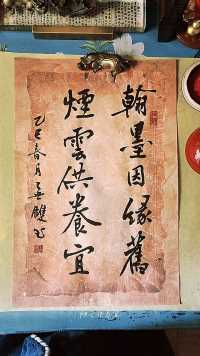 翰墨因緣舊
煙雲供養宜
乙巳春月